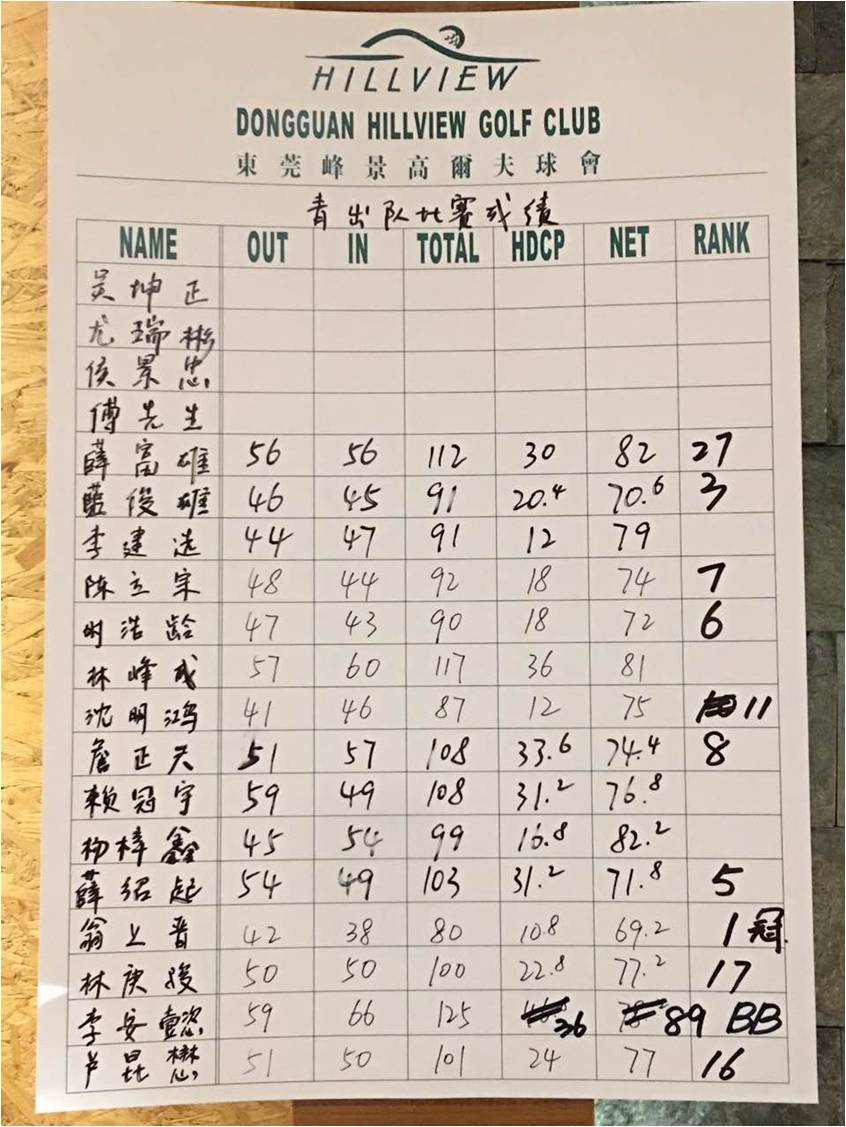 HILLVIEW
DONGGUAN HILLVIEW GOLF CLUB
東莞峰景高爾夫球會
青出队比赛成績
NAME OUT IN TOTAL HDCP NET RANK
吴坤正
尤瑞彬
侯景忠
傅先生
薛富雄 56 56 112 30 82 27
藍俊雄 46 45 91 20.4 70.6 3
李建 44 47 91 12 79
陈立宗 48 44 92 18 74 7
浩龄 47 43 90 18 72 6
林峰成 57 60 117 36 81
沈明鸿 41 46 87 12 75 11
詹正天 51 57 108 33.6 74.4 8
赖冠宇 59 49 108 31.2 76.8
杨梓鑫 45 54 99 16.8 82.2
薛绍起 54 49 103 31.2 71.8 5
翁上晋 42 38 80 10.8 69.2 1冠
林庚骏 50 50 100 22.8 77.2 17
李安懿 59 66 125 36 89 BB
卢昆懋 51 50 101 24 77 16